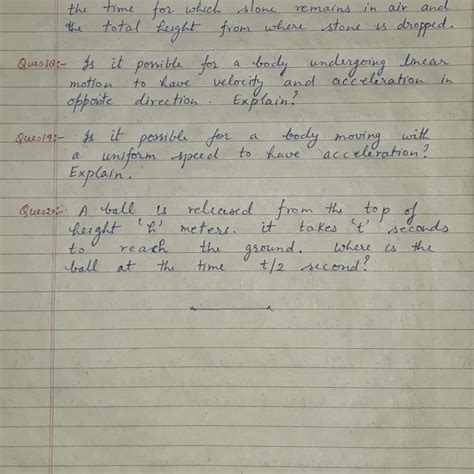 the time for which stone remains in air and
the total height from where stone is dropped.
Ques18:- Is it possible for a body undergoing linear
motion to have velocity and acceleration in
opposite direction. Explain?
Ques19:- Is it possible for a body moving with
a uniform speed to have acceleration?
Explain.
Ques20:- A ball is released from the top of
height 'h' meters. it takes 't' seconds
to reach the ground. Where is the
ball at the time t/2 second?